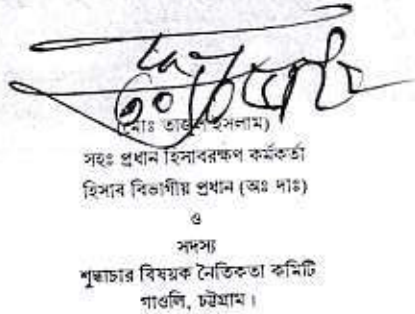 (মোঃ তাজুল ইসলাম)
সহঃ প্রধান হিসাবরক্ষণ কর্মকর্তা
হিসাব বিভাগীয় প্রধান (অঃ দাঃ)
ও
সদস্য
শুদ্ধাচার বিষয়ক নৈতিকতা কমিটি
গাওলি, চট্টগ্রাম।